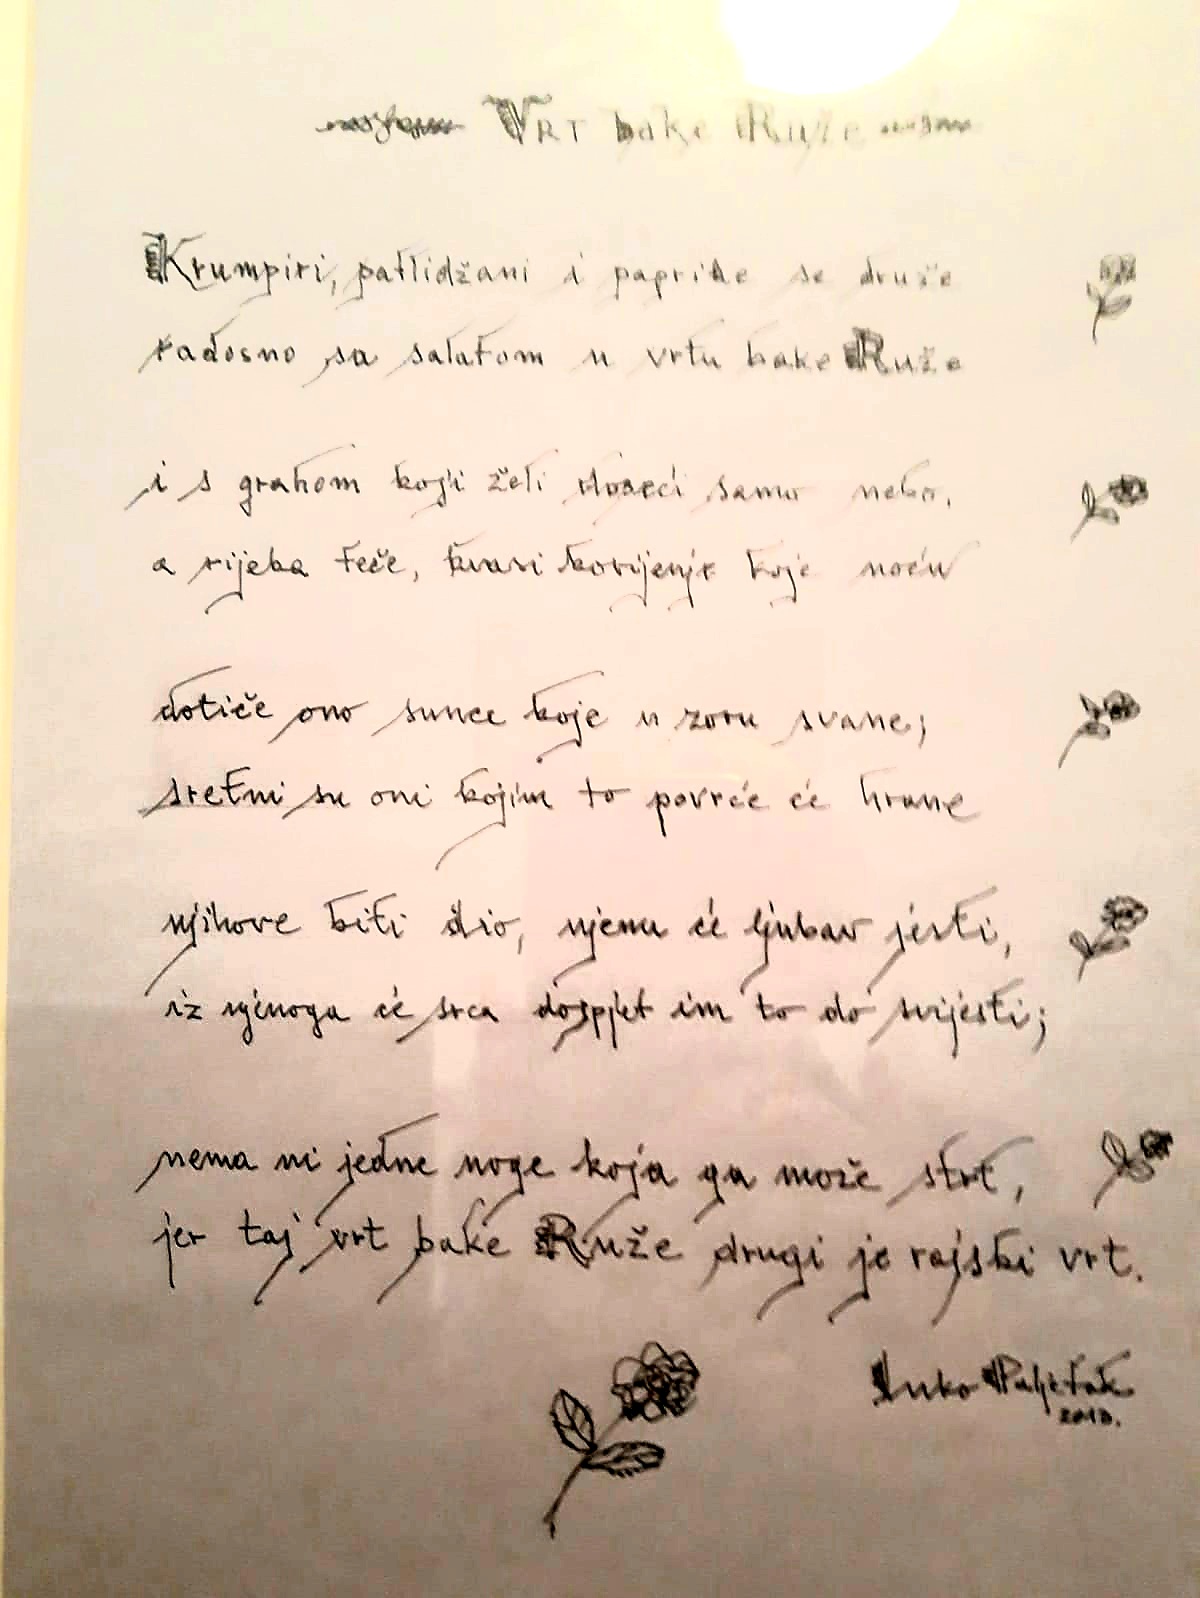 Vrt bake Ruže
Krumpiri, patlidžani i paprike se druže
radosno sa salatom u vrtu bake Ruže
i s grahom koji želi doseći samo nebo,
a rijeka teče, kvasi korijenje koje noću
dotiče ono sunce koje u zoru svane;
sretni su oni kojim to povrće će hrane
njihove biti dio, njemu će ljubav jesti,
iz njenoga će srca dospjet im to do svijesti;
nema ni jedne noge koja ga može strt,
jer taj vrt bake Ruže drugi je rajski vrt.
Luko Paljetak